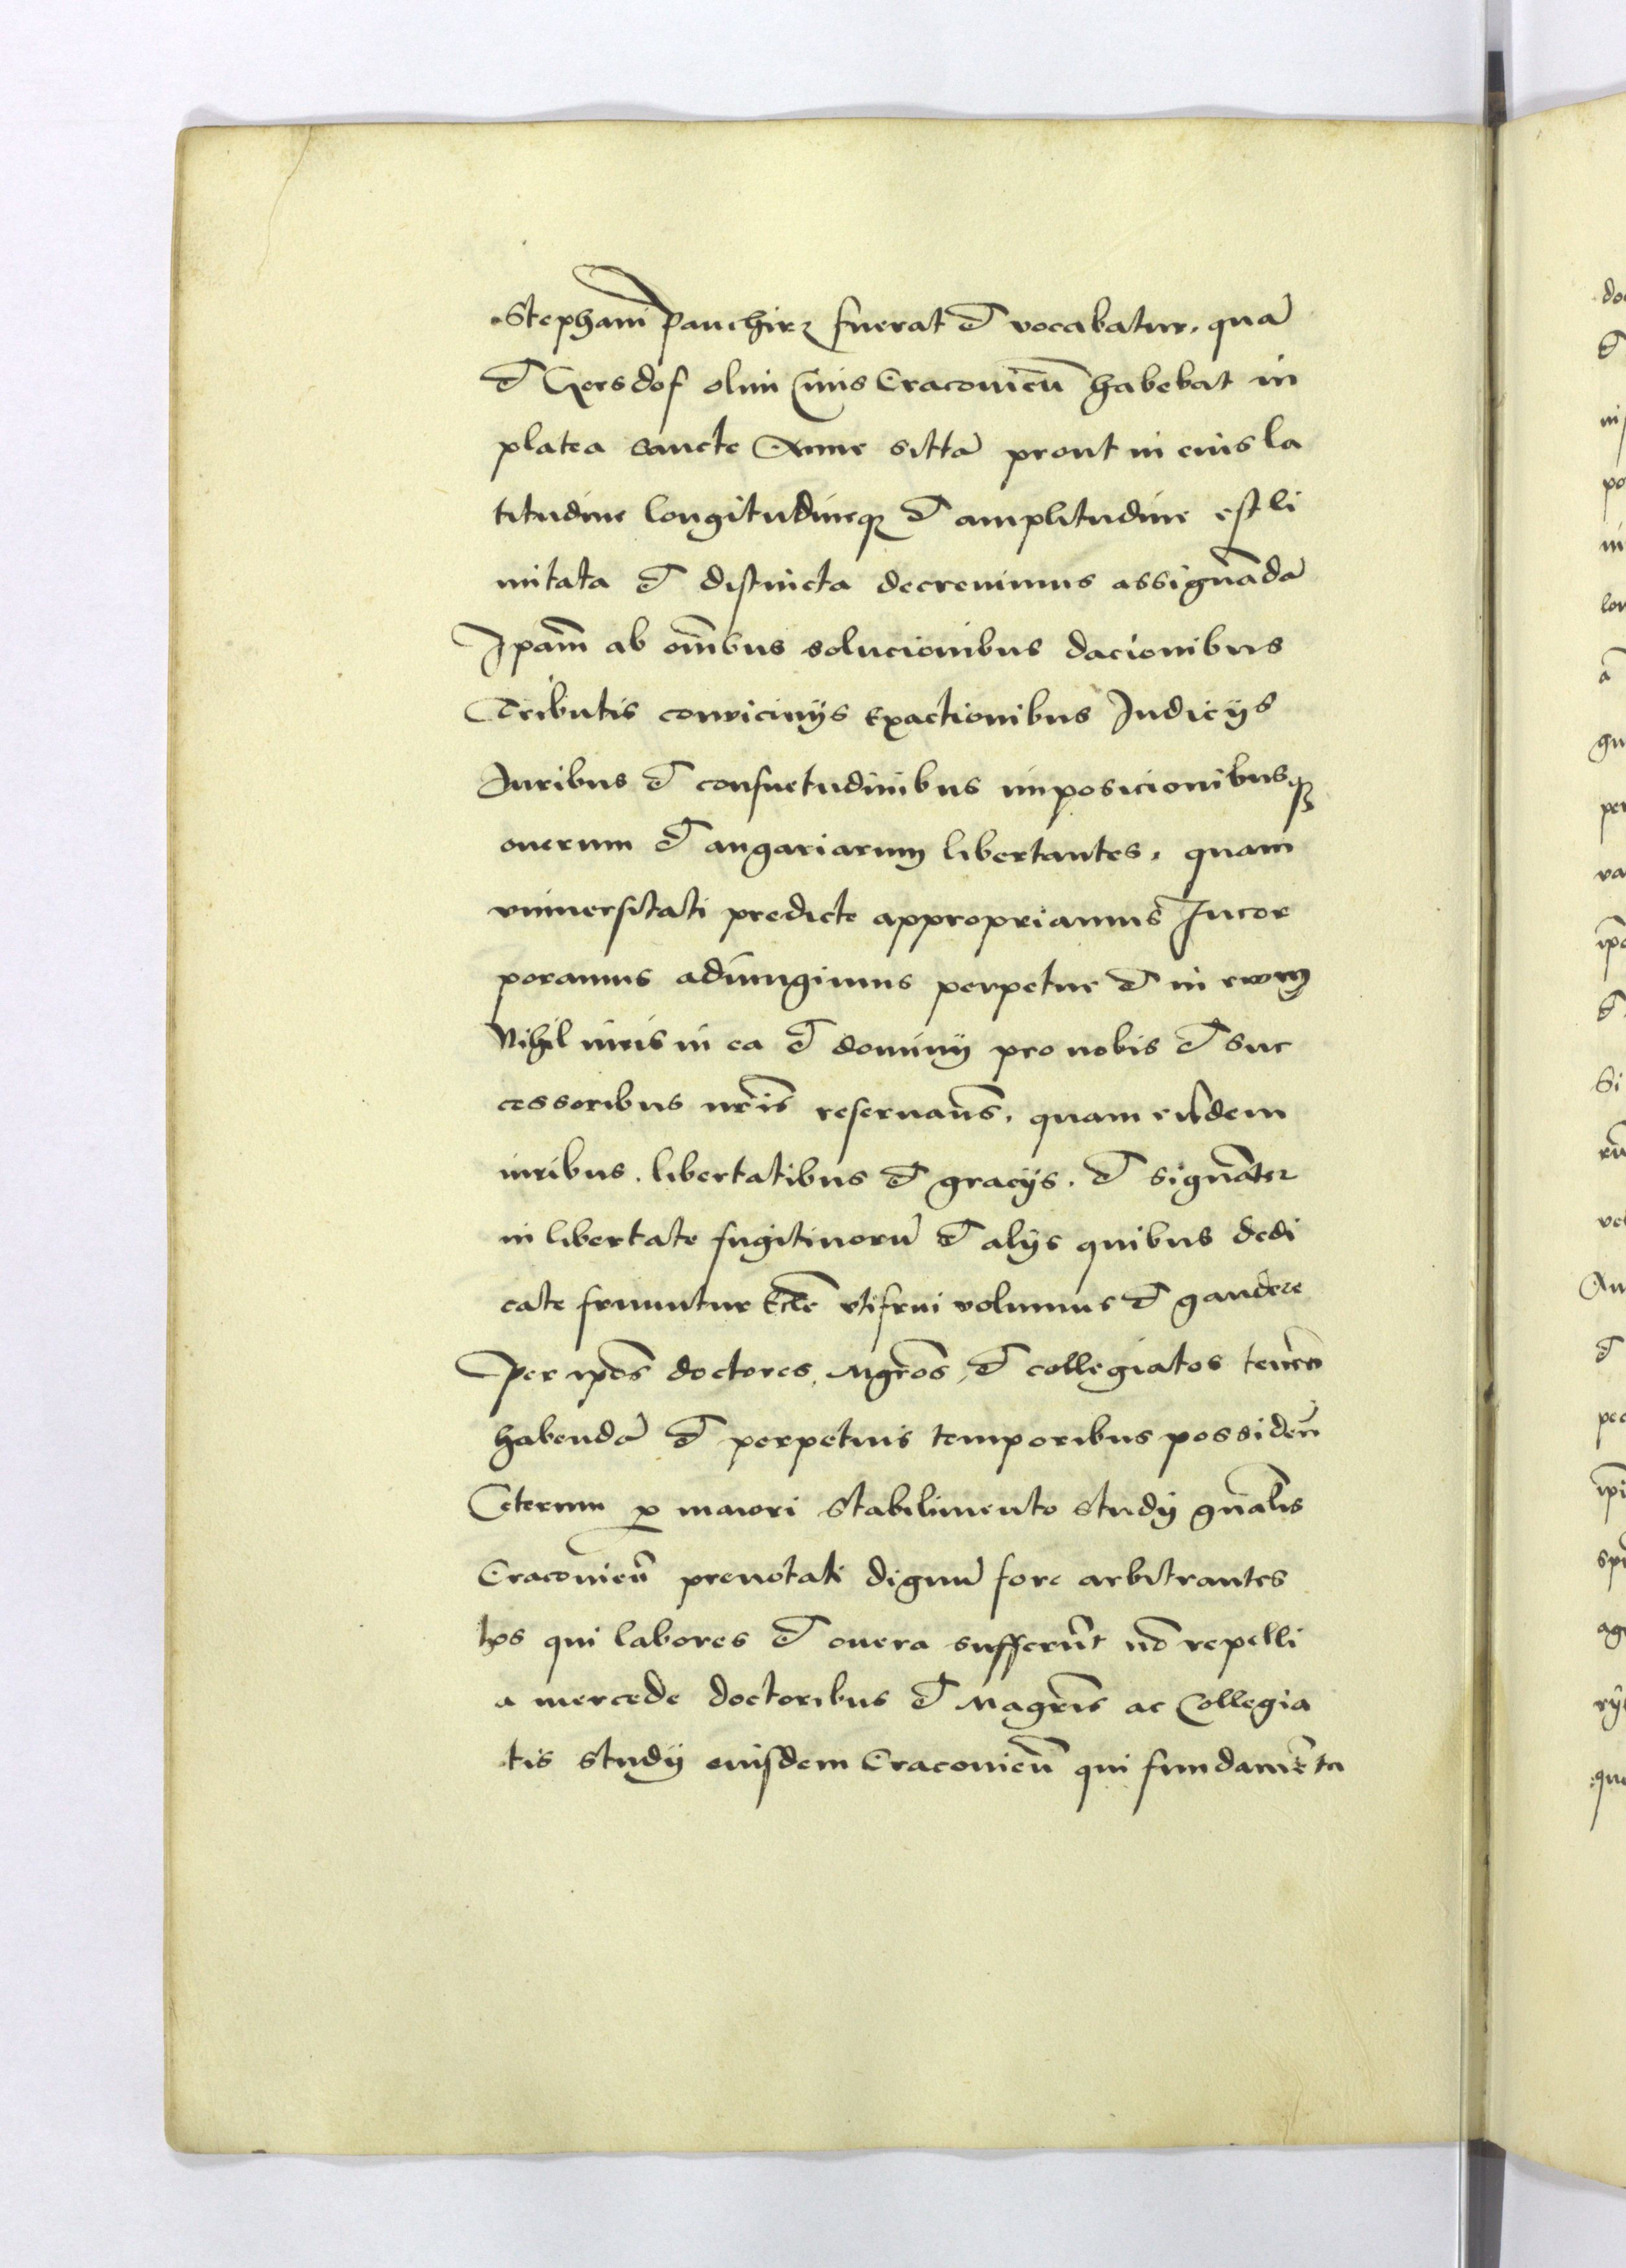 Stephani Pauchirz fuerat et vocabatur, quā
et Gersdof olim Ciuis Cracovień habebat in
platea sancte Anne sittā prout in eius la
titudine longitudineq₃ et amplitudine est li
mitata et distincta decreuimus assignādā
Ip̄am ab om̄ibus solucionibus dacionibus
Tributis convicinijs Exactionibus Iudicijs
Iuribus et consuetudinibus imposicionibusq₃
onerum et angariarum libertantes, quam
vniuersitati predicte appropriamus Incor
poramus adiungimus perpetue et in ewm
Nihil iuris in ea et dominij pro nobis et suc
cessoribus nr̄is reseruan̄s, quam eisdem
iuribus, libertatibus et gracijs, et signāter
in libertate fugitiuorū et alijs quibus dedi
cate fruuntur Eccl̄e vtifrui volumus et gaudere
Per ip̄os doctores, Mgr̄os, et collegiatos teneñ
habendā et perpetuis temporibus possideñ
Ceterum p̱ maiori stabilimento studij gnālis
Cracovień prenotati dignū fore arbitrantes
hos qui labores et onera sufferūt nō repelli
a mercede doctoribus et Magr̄is ac Collegia
tis studij eiusdem Cracovień qui fundamēta